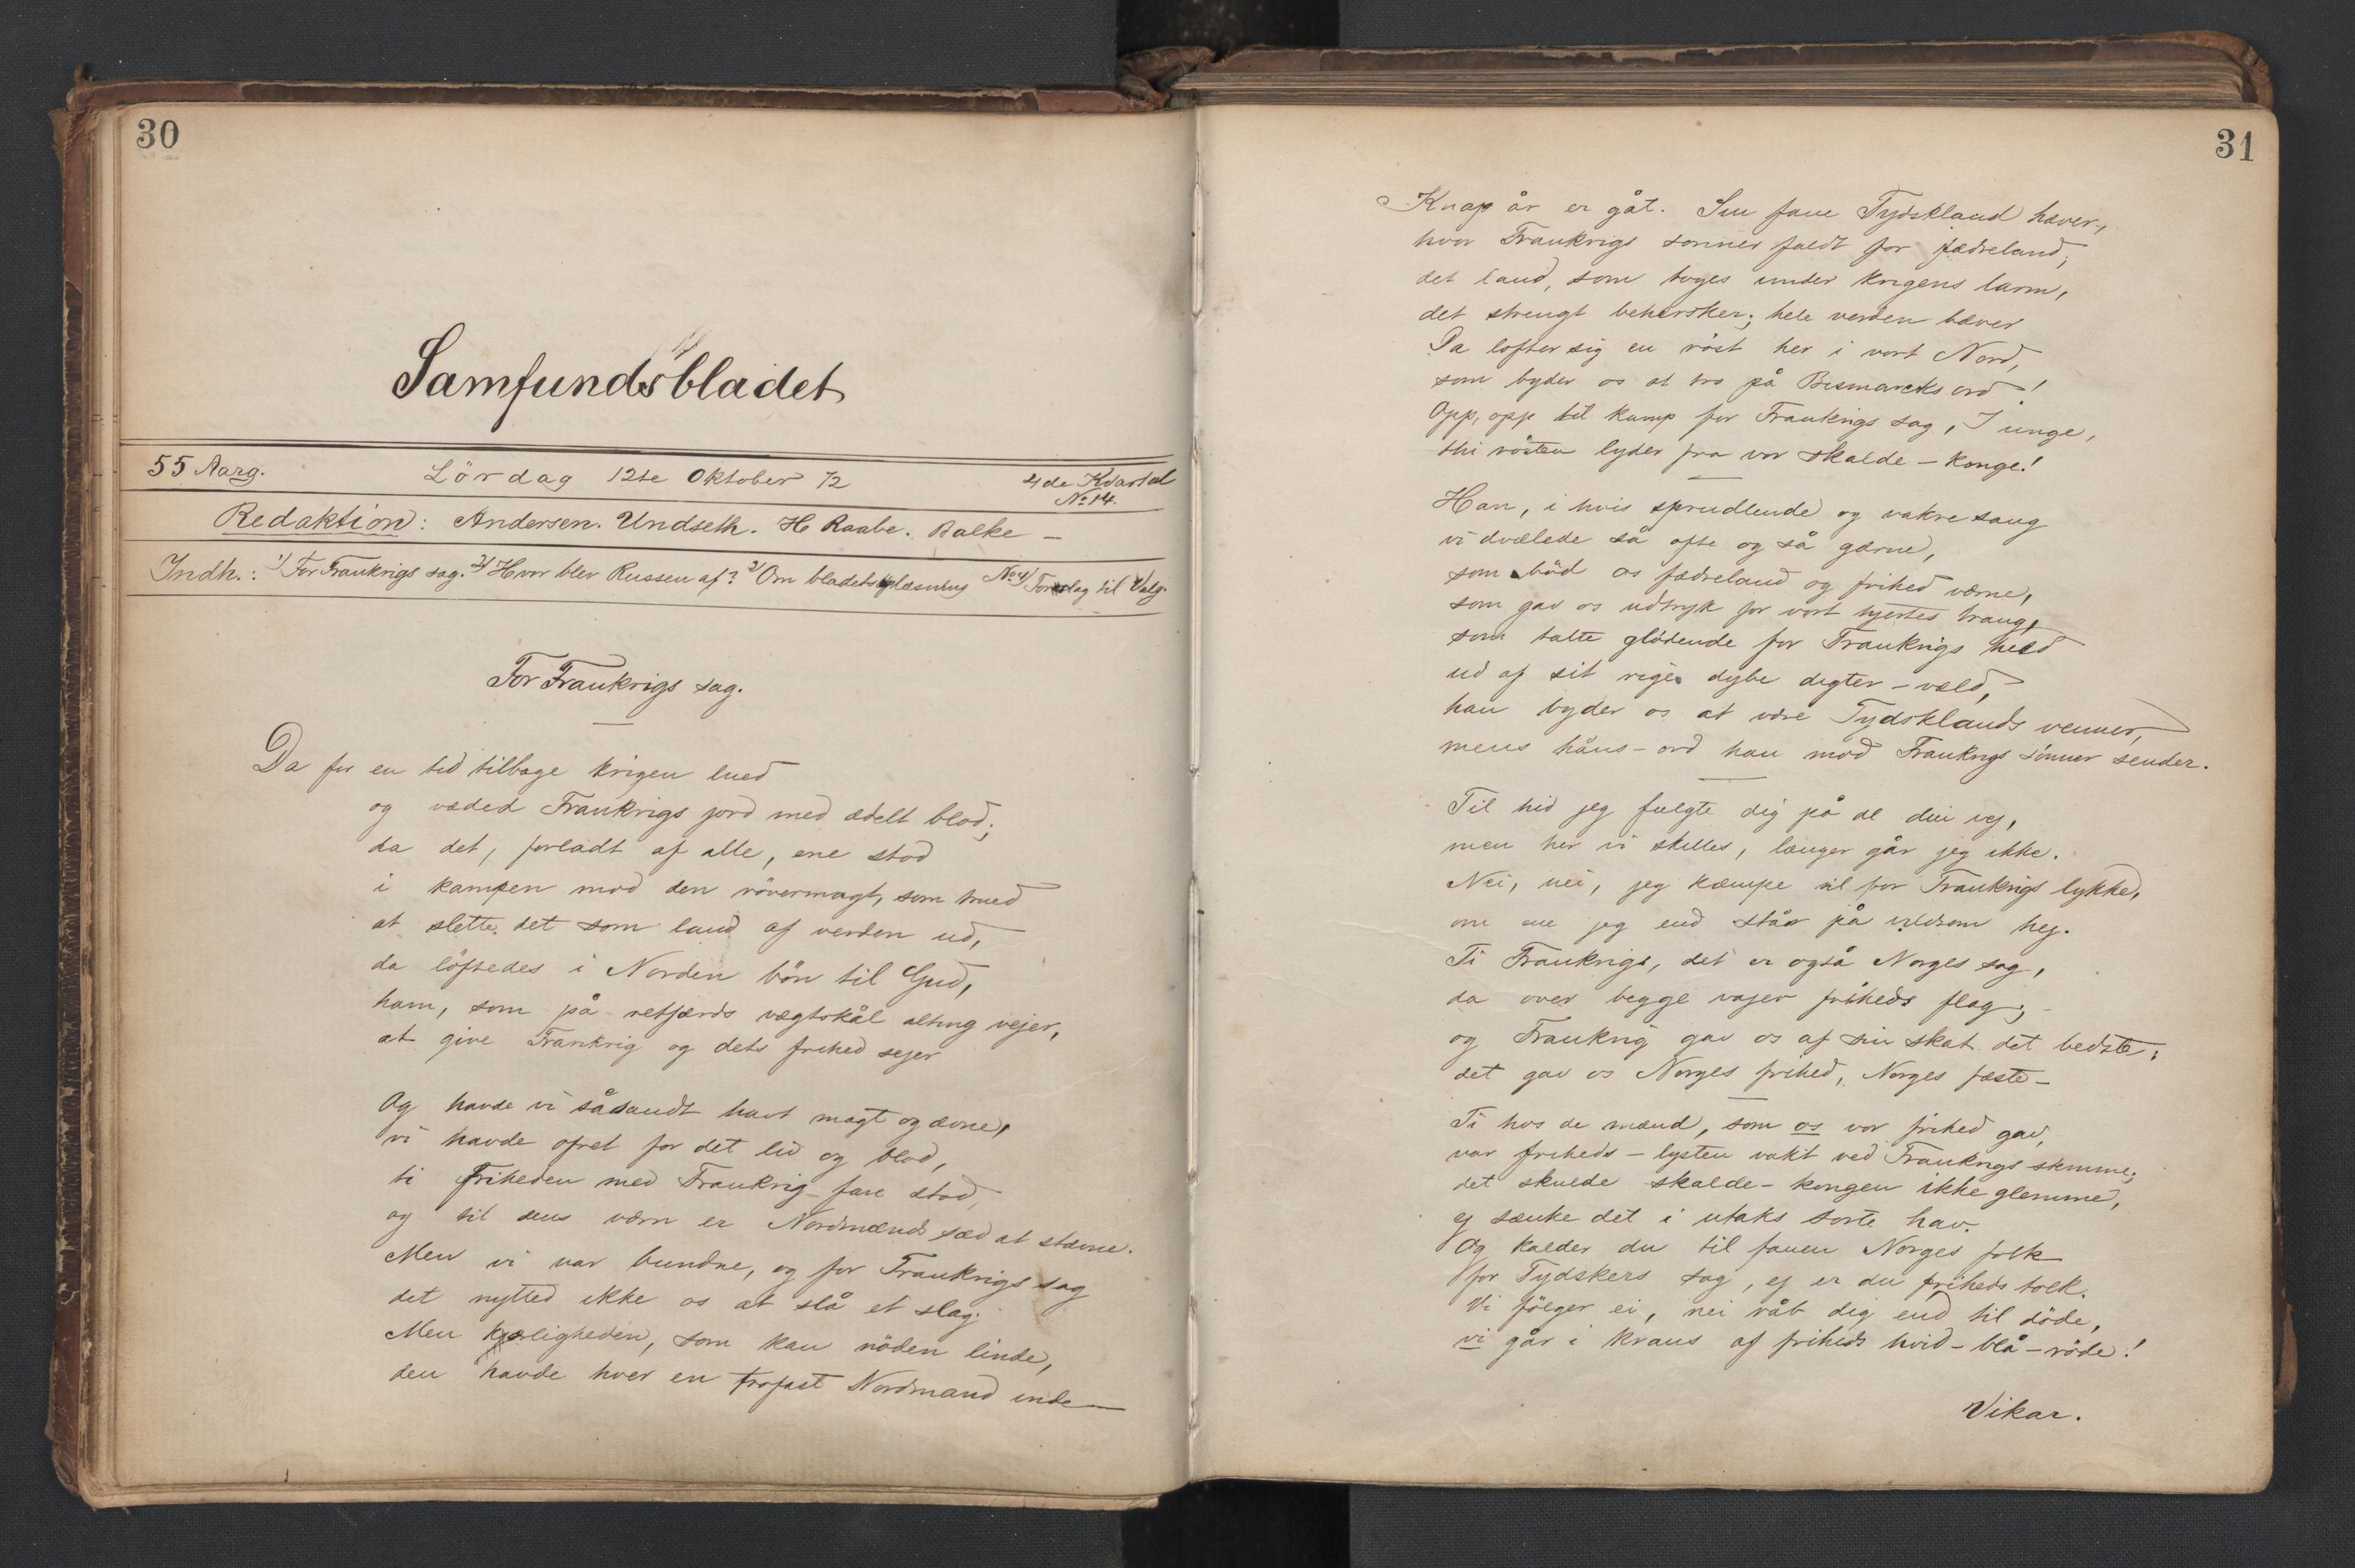 30
Samfundsbladet
55 Aarg. Lördag 12te Oktober 72 4de Kvartal
No 14.
Redaktion: Andersen. Undseth. H Raabe. Balke —
Indh.: 1) For Frankrigs sag. 2) Hvor blev Russen af? 3) Om bladets oplæsning No 4) Forslag til Valg.
For Frankrigs sag.
Da for en tid tilbage krigen lued
og væded Frankrigs jord med ædelt blod;
da det, forladt af alle, ene stod
i kampen mod den rövermagt, som trued
at slette det som land af verden ud,
da löftedes i Norden bön til Gud,
ham, som på retfærds vægtskål alting vejer,
at give Frankrig og dets frihed sejer
Og havde vi såsandt havt magt og ævne,
vi havde ofret for det liv og blod,
ti friheden med Frankrig fare stod,
og til dens værn er Nordmænds sæd at stævne.
Men vi var bundne, og for Frankrigs sag
det nytted ikke os at slå et slag.
Men kjærligheden, som kan nöden linde,
den havde hver en trofast Nordmand inde —
31
Knap år er gåt. Sin fane Tydskland hæver,
hvor Frankrigs sønner faldt for fædreland;
det land, som toges under krigens larm,
det strengt behersker; hele verden bæver
Da løfter sig en röst her i vort Nord,
som byder os at tro på Bismarcks ord!
Opp, opp til kamp for Frankrigs sag, I unge,
thi rösten lyder fra vor skalde-konge!
Han, i hvis sprudlende og vakre sang
vi dvælede så ofte og så gærne,
som böd os fædreland og frihed værne,
som gav os udtryk for vort hjertes trang,
som talte glödende for Frankrigs held
ud af sit rige dybe digter-væld,
han byder os at være Tydsklands venner,
mens håns-ord han mod Frankrigs sönner sender.
Til hid jeg fulgte dig på al din vej,
men her vi skilles, længer går jeg ikke.
Nei, nei, jeg kæmpe vil for Frankrigs lykke,
om ene jeg end står på vildsom hej.
Ti Frankrigs, det er også Norges sag,
da over begge vajer friheds flag;
og Frankrig gav os af sin skat det bedste;
det gav os Norges frihed, Norges fæste —
Ti hos de mænd, som os vor frihed gav,
var friheds-lysten vakt ved Frankrigs stemme;
det skulde skalde-kongen ikke glemme,
ej sænke det i utaks sorte hav.
Og kalder du til fanen Norges folk
for Tydskers sag, ej er du friheds tolk.
Vi fölger ei, nei råb dig end til döde,
vi går i krans af friheds hvid-blå-röde!
Vikar.